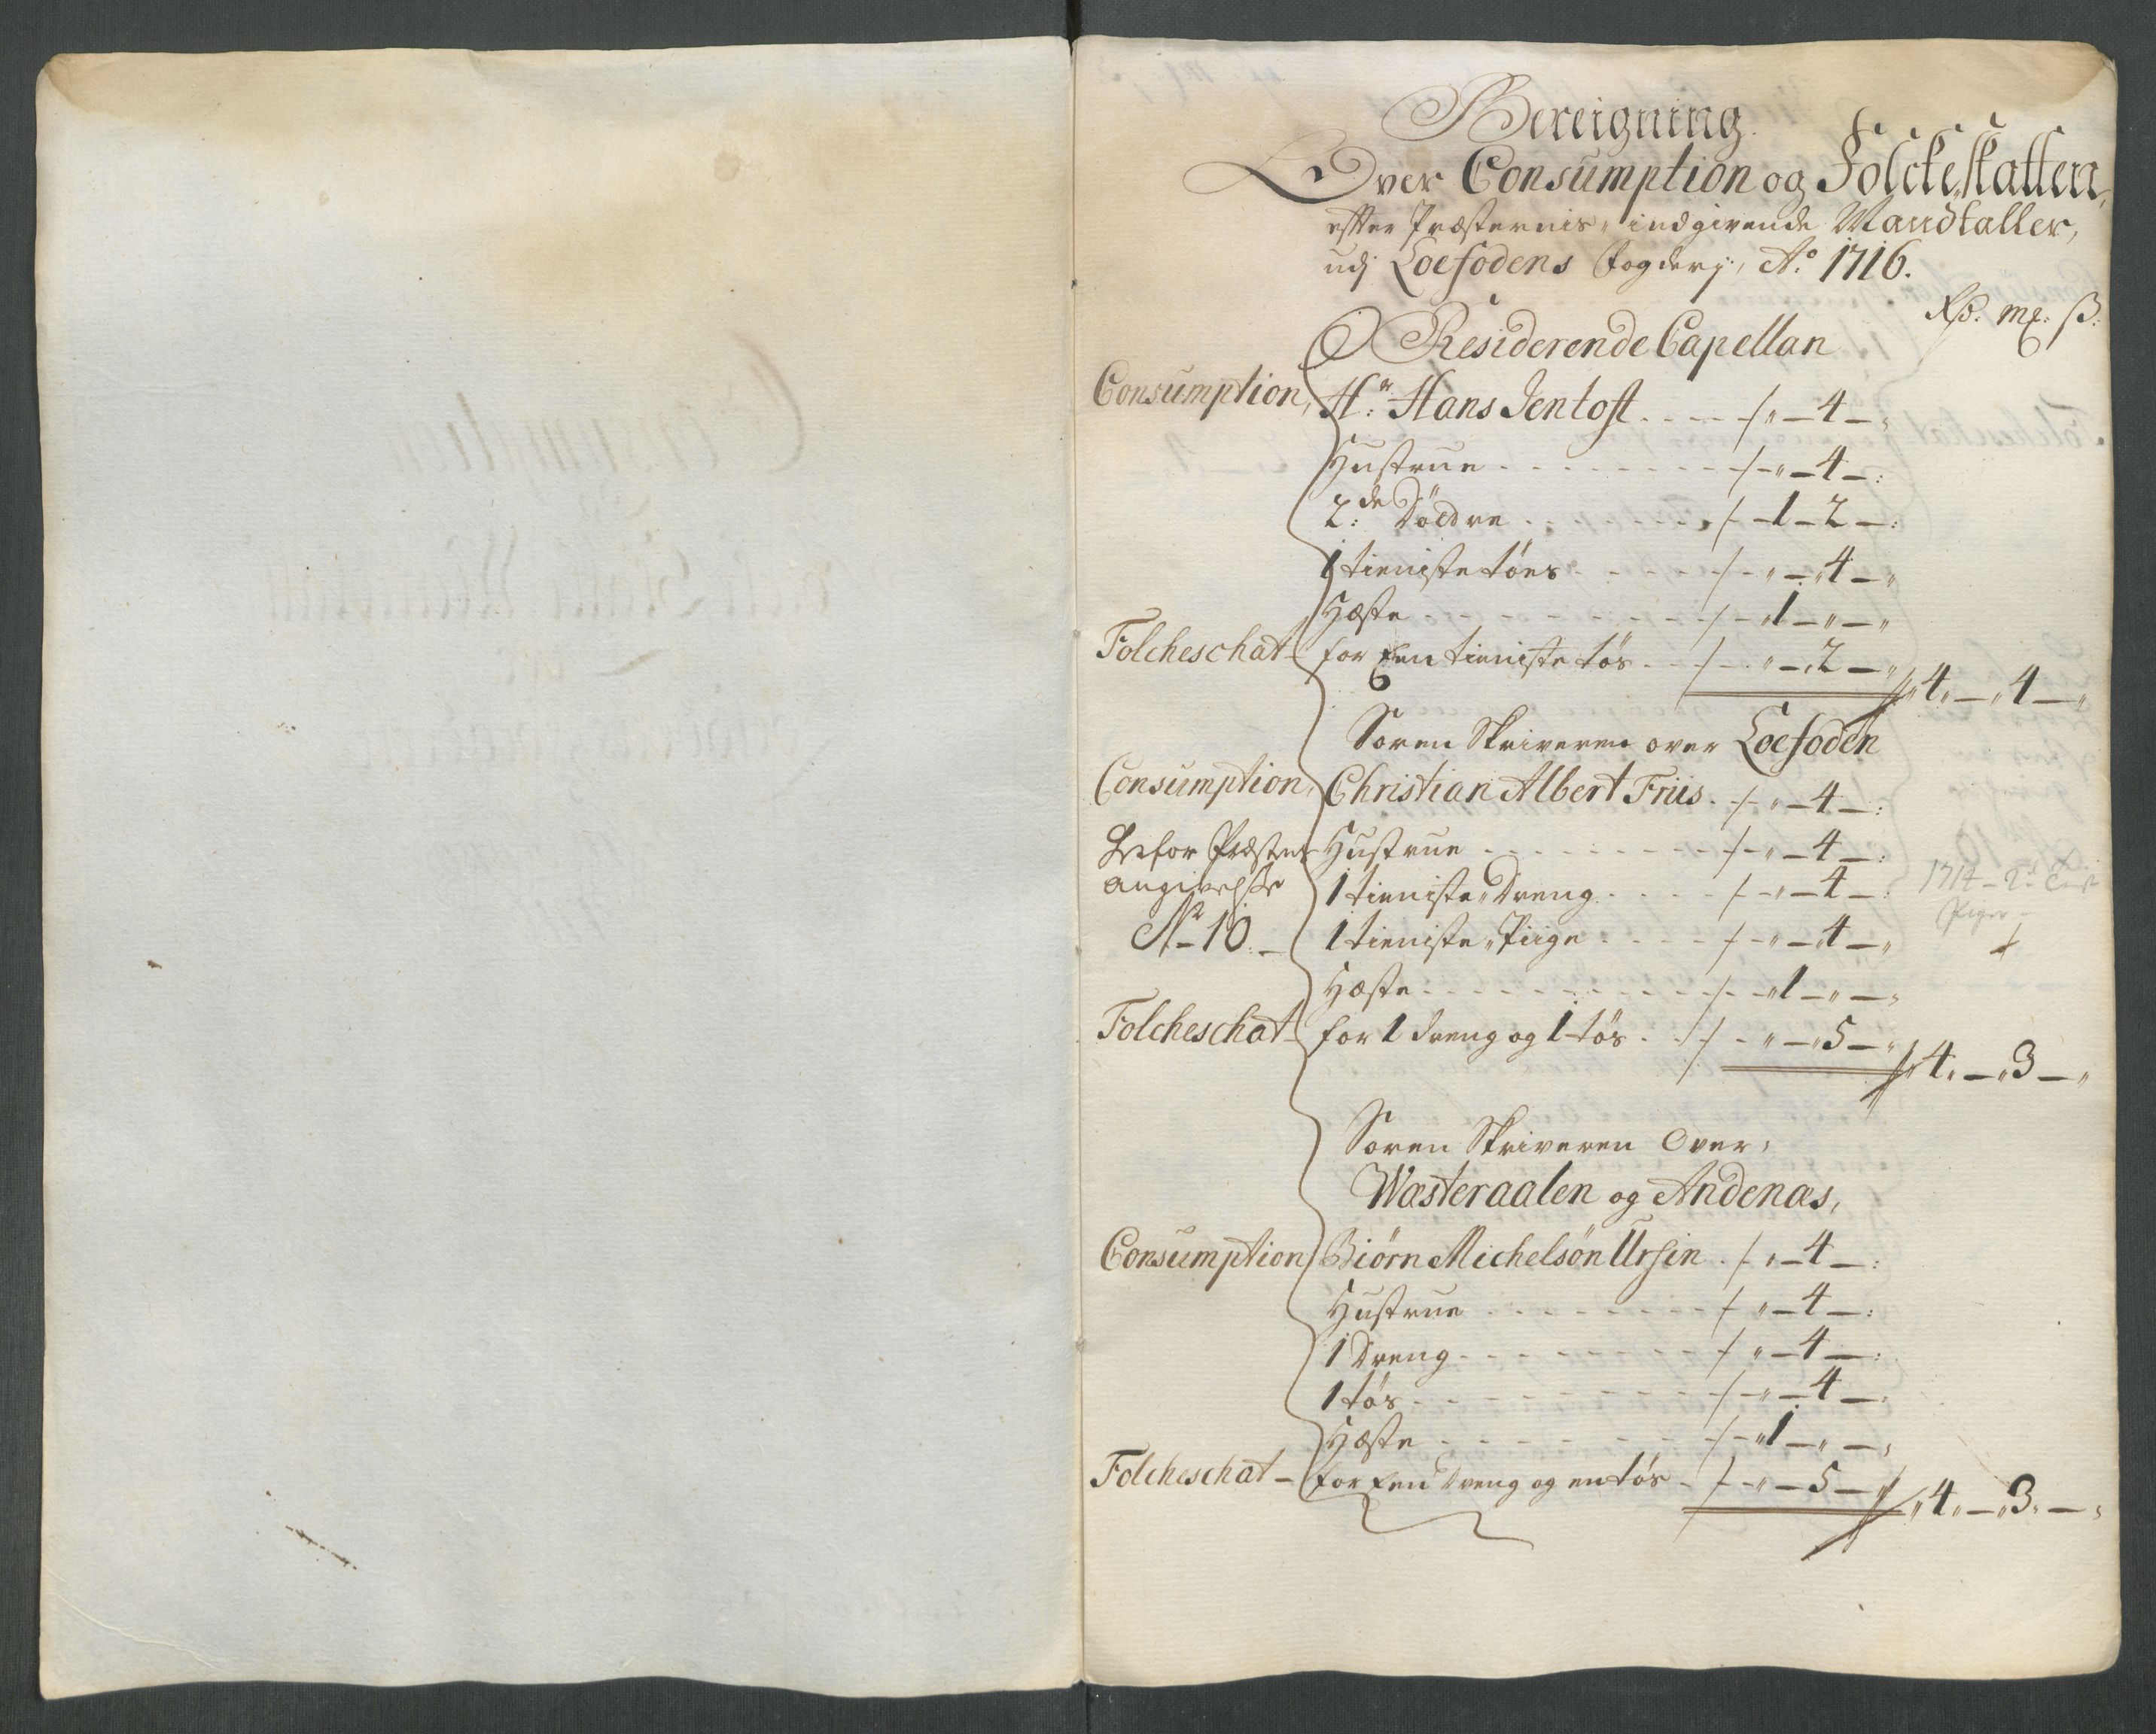 Bereigning
Over Consumption og Folckeskatten,
effter Præsternis indgivende Mandtaller,
udj Loefodens Fogderj, Aº 1716.
Rd. mk. ß.
Residerende Capellan
Consumption, Hr: Hans Jentoft . . . . " — 4 — "
Hustrue . . . . " — 4 — :
2de Döedre . . . . 1 — 2 — :
1 tieniste töes . . . . " — 4 — "
Hæste . . . . 1 — " — "
Folcheschat — for Een tieniste tös . . . " — 2 — "
4 — 4 — "
Soren Skriveren over Loefoden
Consumption, Christian Albert Friis . " — 4 — :
Hustrue . . . . " — 4 — :
Præstens
angivelse
1 tieniste Dreng . . . . " — 4 — :
No 10 — 1 tieniste Piige . . . . " — 4 — "
1714 — 2de
Piger —
Hæste . . . . 1 — " — "
Folcheschat — for 1 dreng og 1 tös . . " — 5 — "
4 — 3 — "
Soren Skriveren Over,
Wæsteraalen og Andenæs,
Consumption Biörn Michelsön Ursin . " — 4 — :
Hustrue . . . . " — 4 — :
1 Dreng . . . . " — 4 — :
1 tös . . . . " — 4 — "
Hæste . . . . 1 — " — "
Folcheschat — for Een Dreng og en tös — " — 5 — "
4 — 3 — "